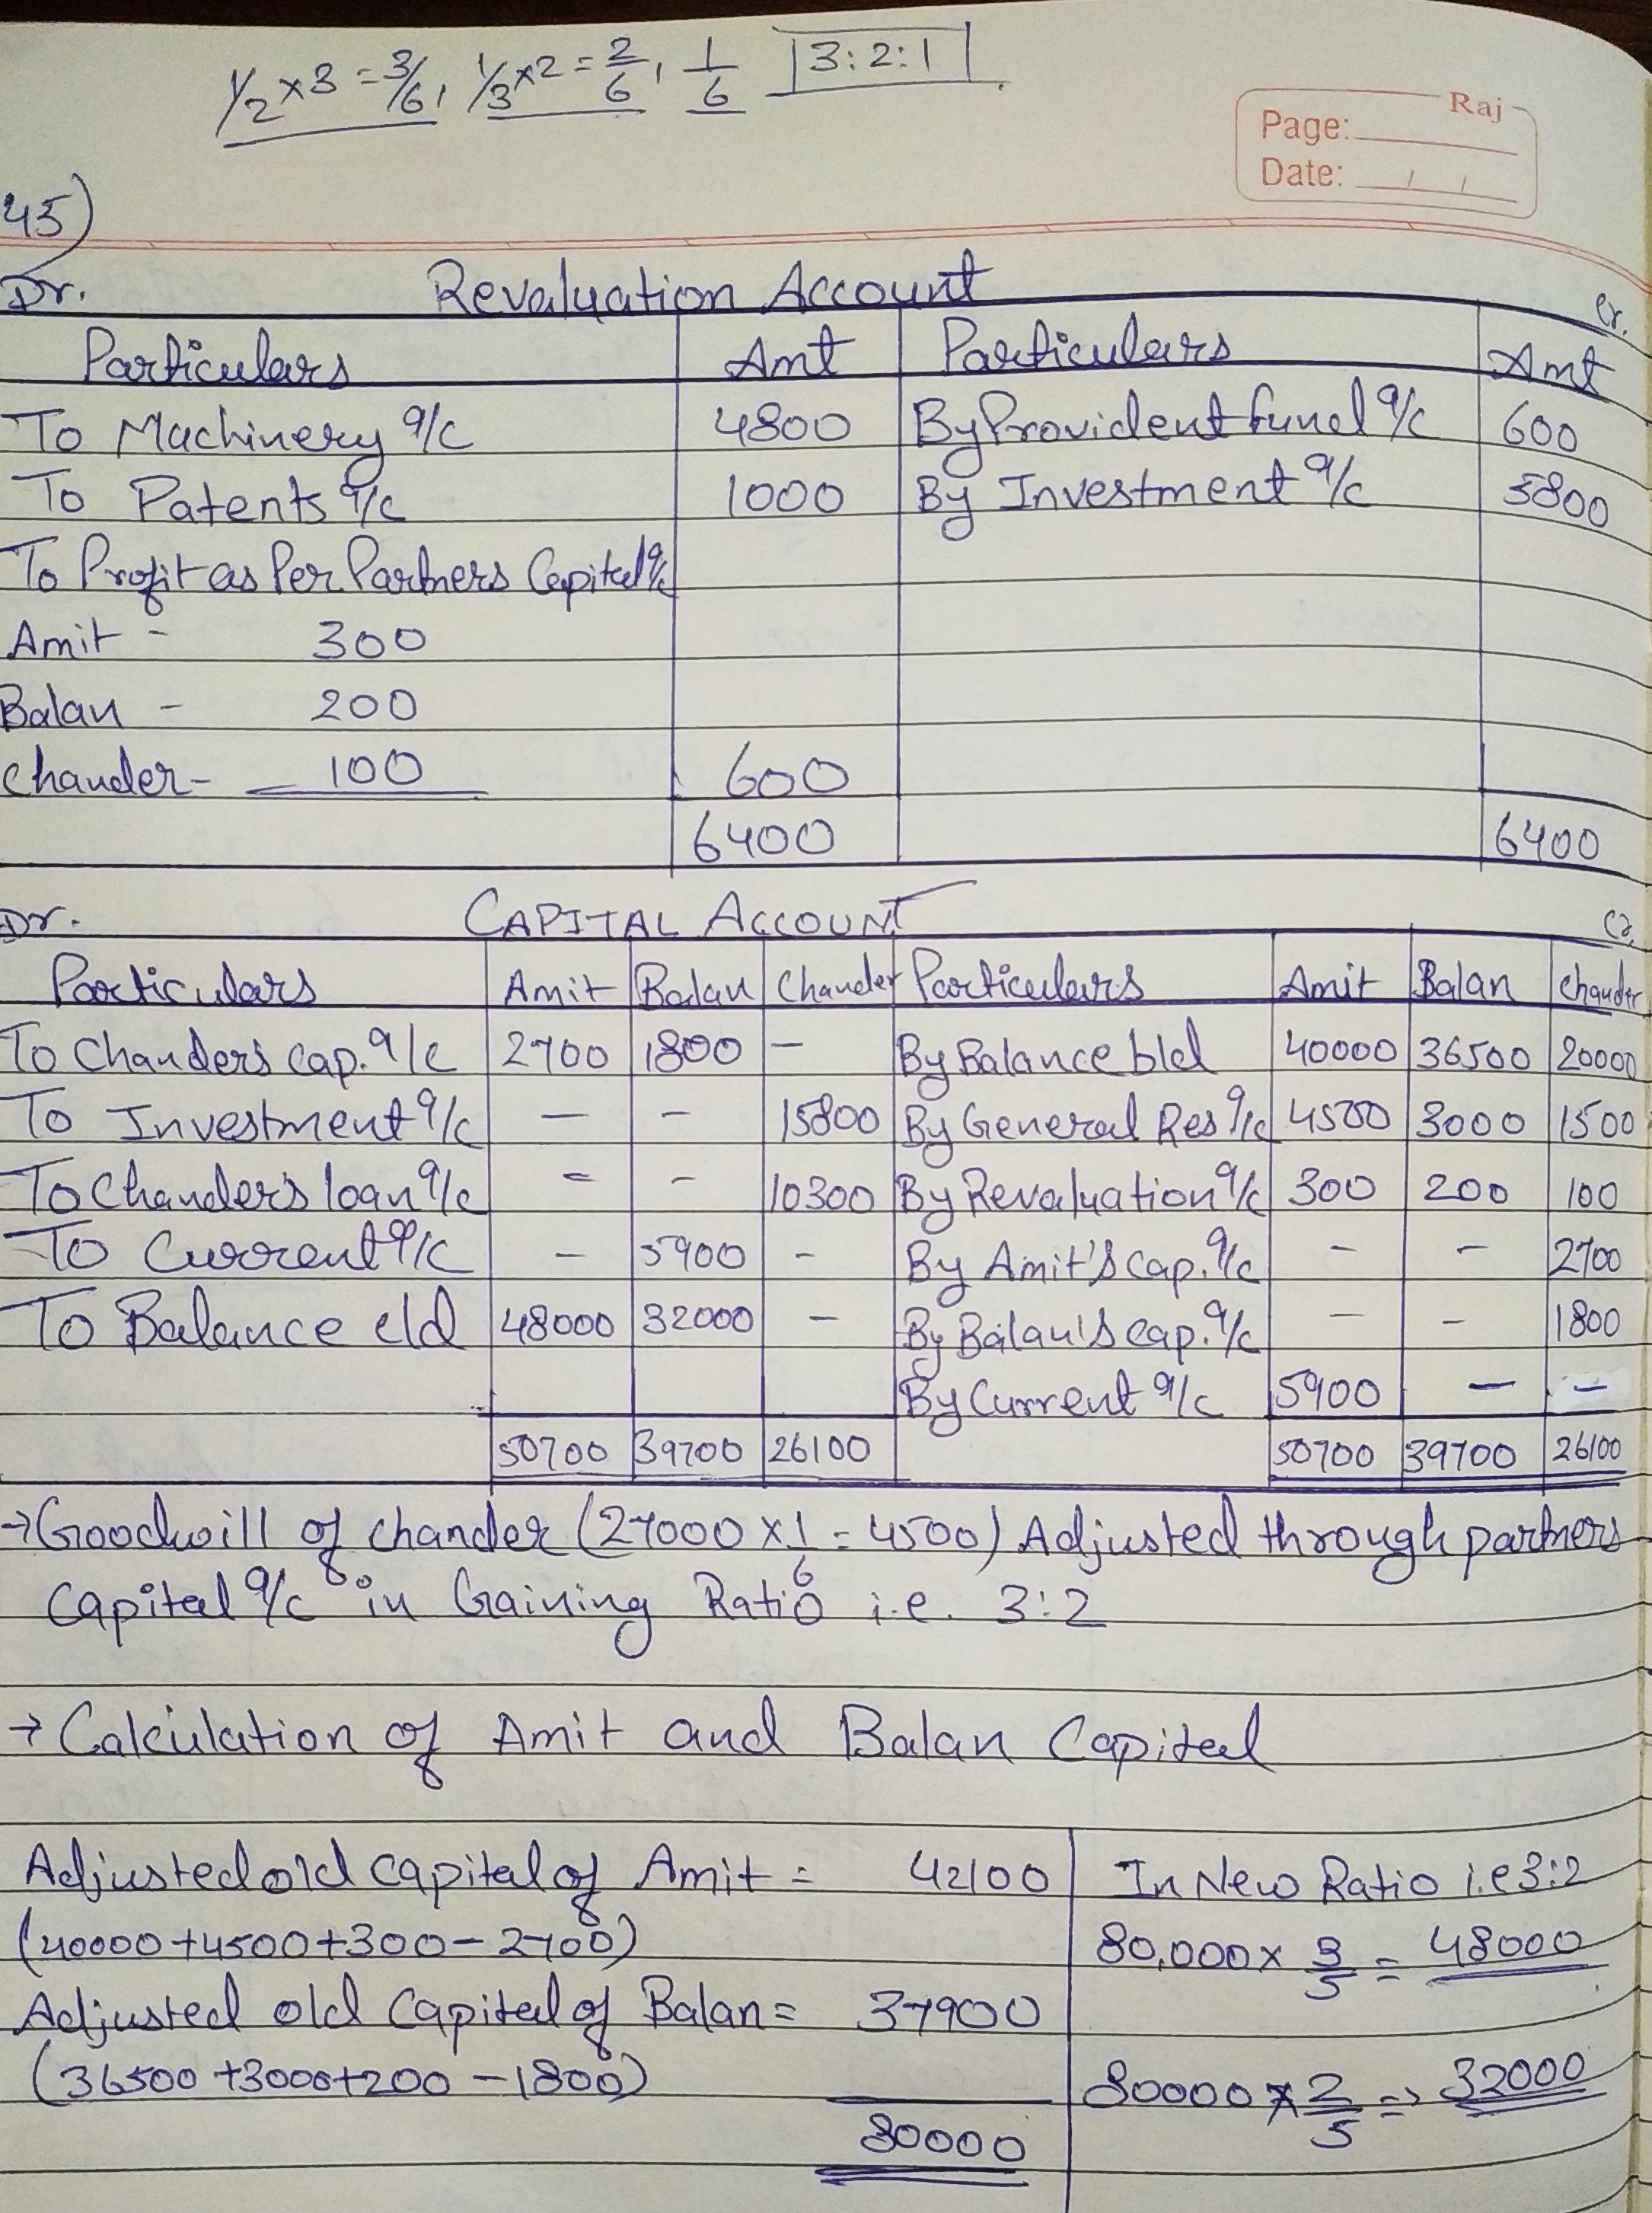 1/2 × 3 = 3/6, 1/3 × 2 = 2/6, 1/6 3:2:1
Raj
Page:
Date: / /
45)
Dr. Revaluation Account Cr.
Particulars Amt Particulars Amt
To Machinery a/c 4800 By Provident fund a/c 600
To Patents a/c 1000 By Investment a/c 5800
To Profit as Per Partners Capital a/c
Amit - 300
Balan - 200
Chander - 100 600
6400 6400
Dr. CAPITAL ACCOUNT Cr.
Particulars Amit Balan Chander Particulars Amit Balan Chander
To Chander's cap. a/c 2700 1800 - By Balance b/d 40000 36500 20000
To Investment a/c - - 15800 By General Res a/c 4500 3000 1500
To Chander's loan a/c - - 10300 By Revaluation a/c 300 200 100
To Current a/c - 5900 - By Amit's Cap. a/c - - 2700
To Balance c/d 48000 32000 - By Balan's cap. a/c - - 1800
By Current a/c 5900 - -
50700 39700 26100 50700 39700 26100
→ Goodwill of Chander (27000 × 1/6 = 4500) Adjusted through partners
Capital a/c in Gaining Ratio i.e. 3:2
→ Calculation of Amit and Balan Capital
Adjusted old Capital of Amit = 42100 In New Ratio i.e 3:2
(40000 + 4500 + 300 - 2700) 80,000 × 3/5 = 48000
Adjusted old Capital of Balan = 37900
(36500 + 3000 + 200 - 1800) 80000 × 2/5 => 32000
80000